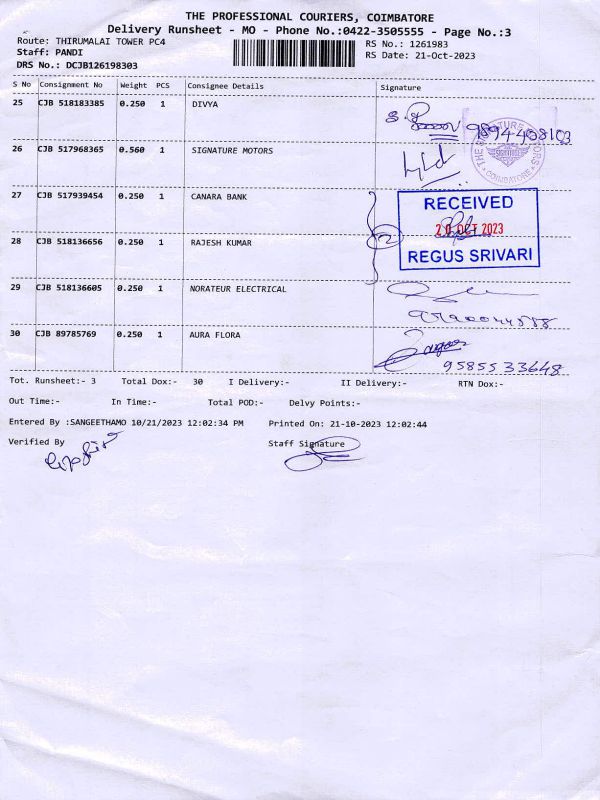 THE PROFESSIONAL COURIERS, COIMBATORE
Delivery Runsheet - MO - Phone No.:0422-3505555 - Page No.:3
Route: THIRUMALAI TOWER PC4
RS No.: 1261983
Staff: PANDI
RS Date: 21-Oct-2023
DRS No.: DCJB126198303
S No Consignment No Weight PCS Consignee Details Signature
25 CJB 518183385 0.250 1 DIVYA
9894408103
26 CJB 517968365 0.560 1 SIGNATURE MOTORS
THE SIGNATURE MOTORS
SIGNATURE
COIMBATORE
27 CJB 517939454 0.250 1 CANARA BANK
RECEIVED
20 OCT 2023
REGUS SRIVARI
2
28 CJB 518136656 0.250 1 RAJESH KUMAR
29 CJB 518136605 0.250 1 NORATEUR ELECTRICAL
30 CJB 89785769 0.250 1 AURA FLORA
9585533648
Tot. Runsheet:- 3 Total Dox:- 30 I Delivery:- II Delivery:- RTN Dox:-
Out Time:- In Time:- Total POD:- Delvy Points:-
Entered By :SANGEETHAMO 10/21/2023 12:02:34 PM Printed On: 21-10-2023 12:02:44
Verified By Staff Signature